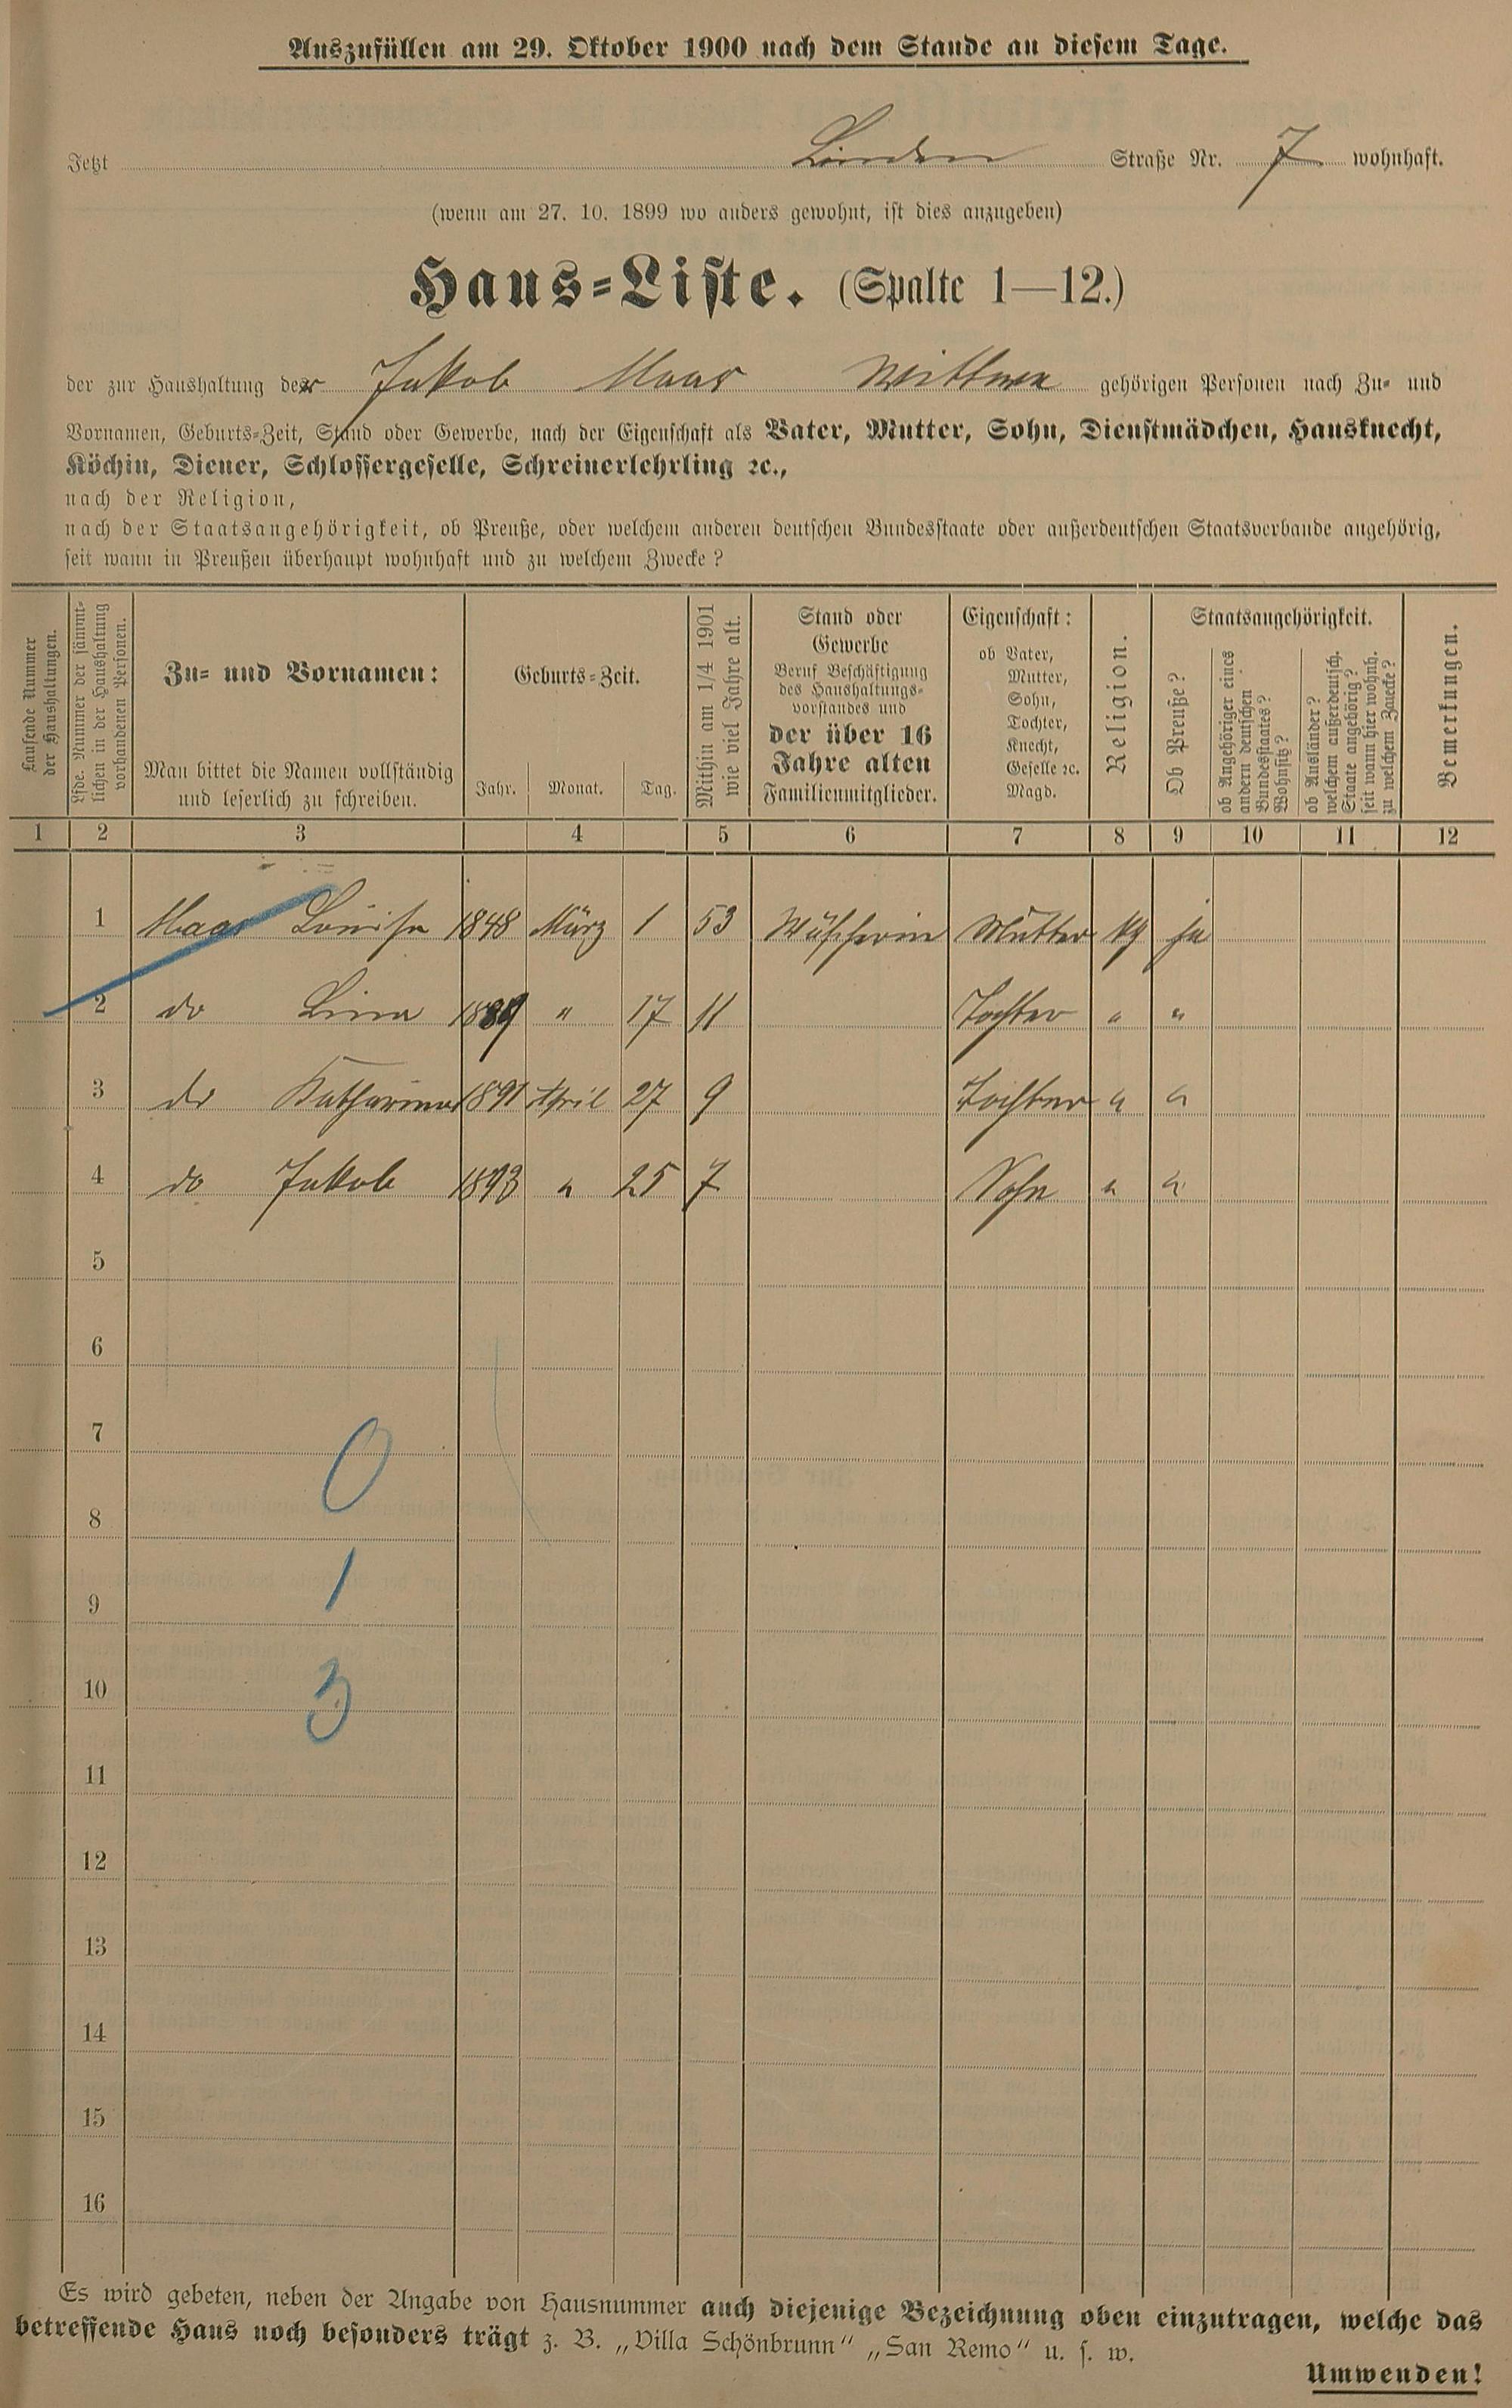 Auszufüllen am 29. Oktober 1900 nach dem Stande an diesem Tage.
Jetzt Linden Straße Nr. 7 wohnhaft.
(wenn am 27. 10. 1899 wo anders gewohnt, ist dies anzugeben)
Haus=Liste. (Spalte 1—12.)
der zur Haushaltung der Jakob Maas Wittwe gehörigen Personen nach Zu= und
Vornamen, Geburts=Zeit, Stand oder Gewerbe, nach der Eigenschaft als Vater, Mutter, Sohn, Dienstmädchen, Hausknecht,
Köchin, Diener, Schlossergeselle, Schreinerlehrling ꝛc.,
nach der Religion,
nach der Staatsangehörigkeit, ob Preuße, oder welchem anderen deutschen Bundesstaate oder außerdeutschen Staatsverbande angehörig,
seit wann in Preußen überhaupt wohnhaft und zu welchem Zwecke?
Laufende Nummer
der Haushaltungen.
Lfde. Nummer der sämmt=
lichen in der Haushaltung
vorhandenen Personen.
Zu= und Vornamen:
Man bittet die Namen vollständig
und leserlich zu schreiben.
Geburts=Zeit.
Jahr. Monat. Tag.
Mithin am 1/4 1901
wie viel Jahre alt.
Stand oder
Gewerbe
Beruf Beschäftigung
des Haushaltungs=
vorstandes und
der über 16
Jahre alten
Familienmitglieder.
Eigenschaft:
ob Vater,
Mutter,
Sohn,
Tochter,
Knecht,
Geselle ꝛc.
Magd.
Religion.
Staatsangehörigkeit.
Ob Preuße?
ob Angehöriger eines
andern deutschen
Bundesstaates?
Wohnsitz?
ob Ausländer?
welchem außerdeutsch.
Staate angehörig?
seit wann hier wohnh.
zu welchem Zwecke?
Bemerkungen.
1 2 3 4 5 6 7 8 9 10 11 12
1 Maas Louise 1848 März 1 53 Wäscherin Mutter kg ja
2 do Lina 1889 " 17 11 Tochter " "
3 do Katharina 1891 April 27 9 Tochter " "
4 do Jakob 1893 " 25 7 Sohn " "
5
6
7
0
8
9 1
10 3
11
12
13
14
15
16
Es wird gebeten, neben der Angabe von Hausnummer auch diejenige Bezeichnung oben einzutragen, welche das
betreffende Haus noch besonders trägt z. B. „Villa Schönbrunn“ „San Remo“ u. s. w.
Umwenden!